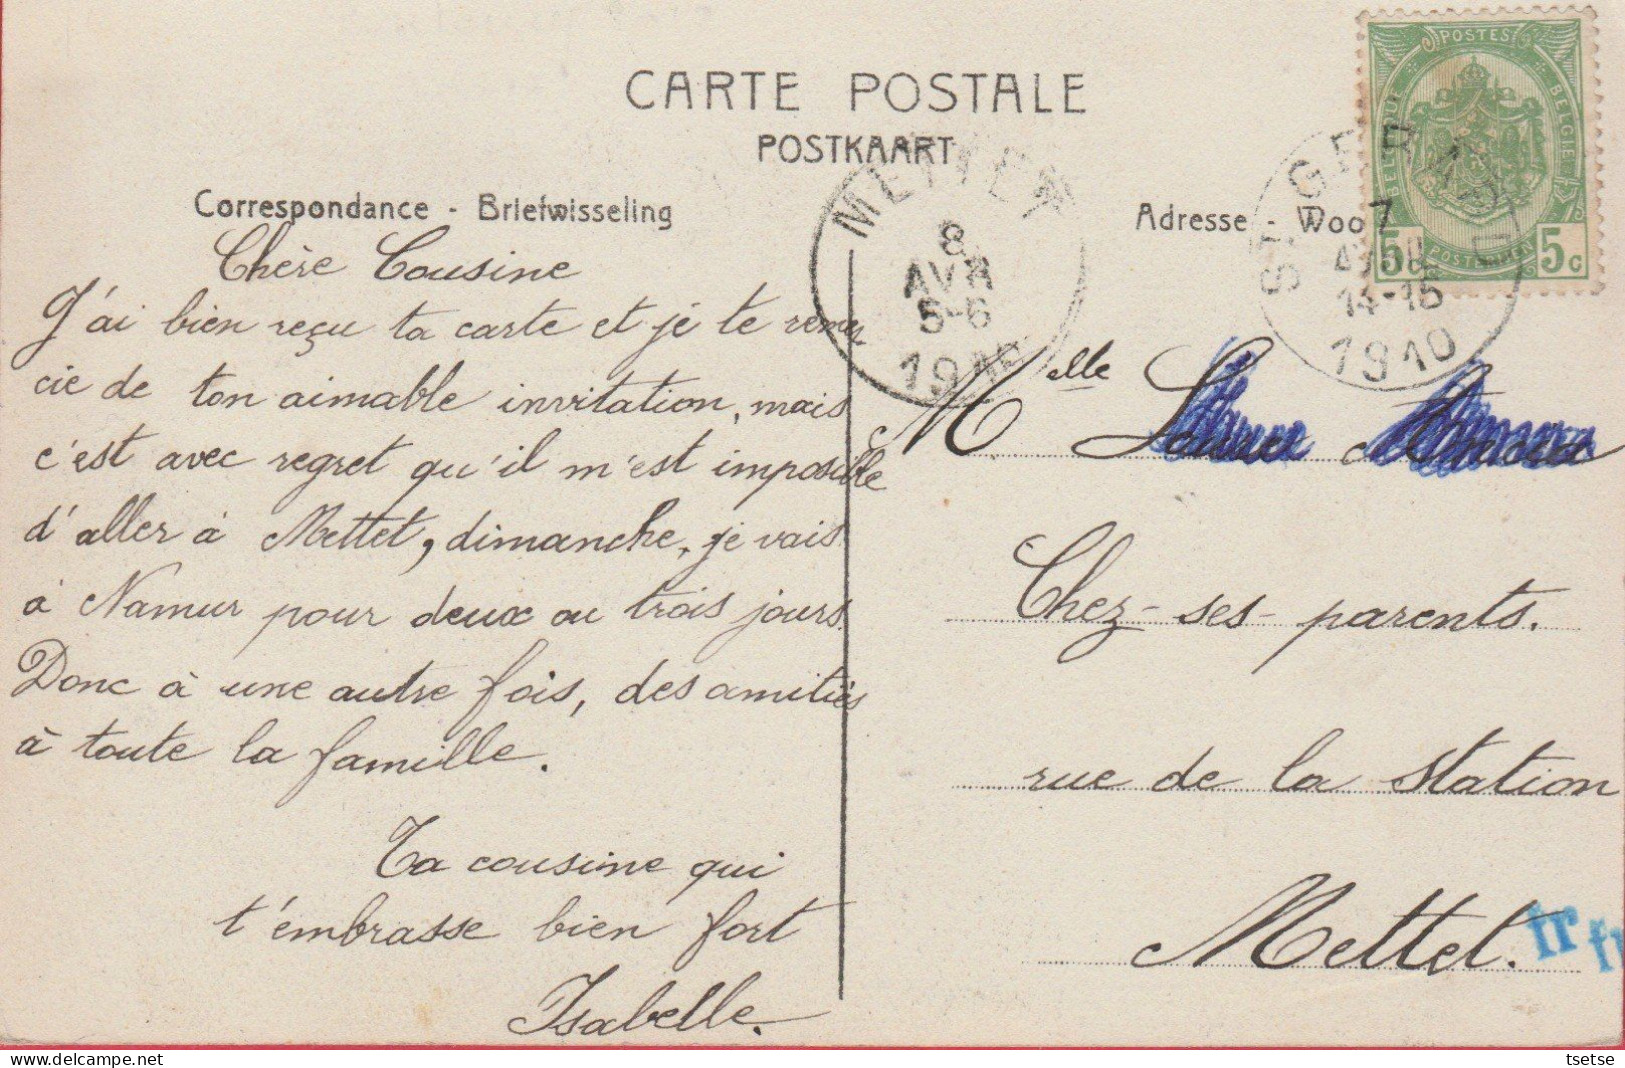 CARTE POSTALE
POSTKAART
Correspondance - Briefwisseling
Adresse - Woo
POSTES
BELGIQUE
BELGIE
POSTERIJEN
5c
5c
METTET
8
AVR
5-6
1910
ST GERARD
7
14-15
1910
Chère Cousine
J'ai bien reçu ta carte et je te remer
cie de ton aimable invitation, mais
c'est avec regret qu'il m'est imposible
d'aller à Mettet, dimanche, je vais
à Namur pour deux ou trois jours.
Donc à une autre fois, des amitiés
à toute la famille.
Ta cousine qui
t'embrasse bien fort
Isabelle.
Melle
Chez-ses-parents.
rue de la station
Mettet.
fr
fr
tsetse